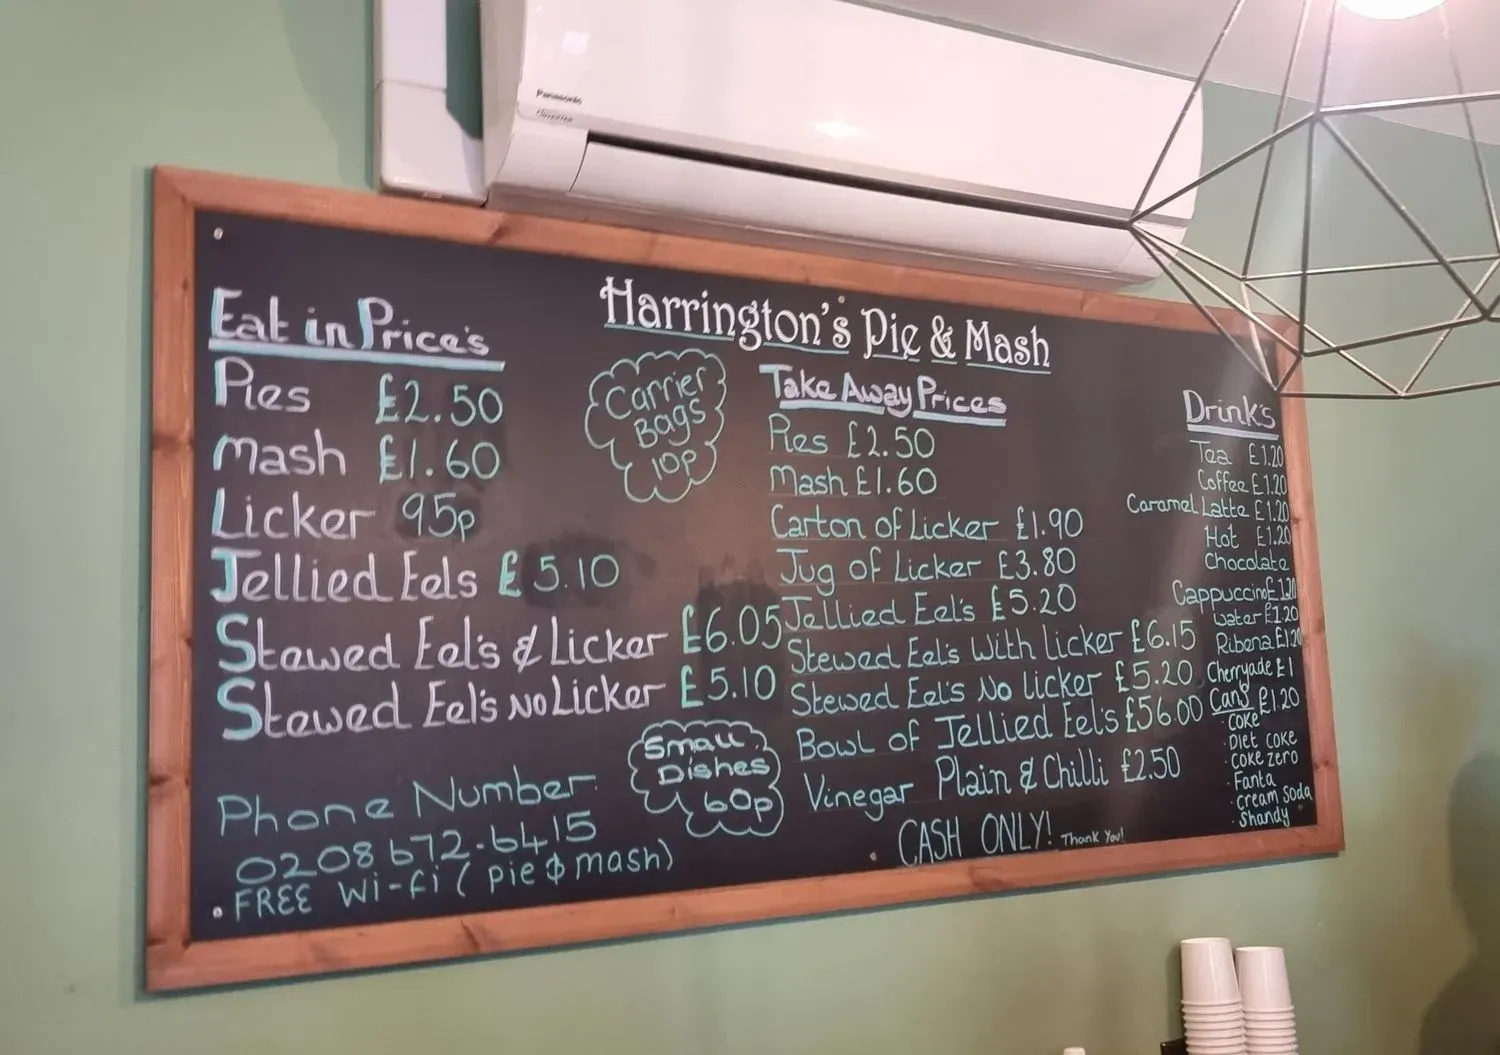 Panasonic
Inverter
Harrington's Pie & Mash
Eat in Price's
Pies £2.50
Mash £1.60
Licker 95p
Jellied Eels £5.10
Stewed Eel's & Licker £6.05
Stewed Eel's No Licker £5.10
Phone Number:
0208 672-6415
FREE Wi-Fi ( pie & mash)
Carrier
Bags
10p
Small
Dishes
60p
Take Away Prices
Pies £2.50
Mash £1.60
Carton of Licker £1.90
Jug of Licker £3.80
Jellied Eel's £5.20
Stewed Eel's With Licker £6.15
Stewed Eel's No licker £5.20
Bowl of Jellied Eel's £56.00
Vinegar Plain & Chilli £2.50
CASH ONLY! Thank You!
Drink's
Tea £1.20
Coffee £1.20
Caramel Latte £1.20
Hot £1.20
Chocolate
Cappuccino £1.20
Water £1.20
Ribena £1.20
Cherryade £1
Cans £1.20
· Coke
· Diet Coke
· Coke zero
· Fanta
· Cream Soda
· Shandy